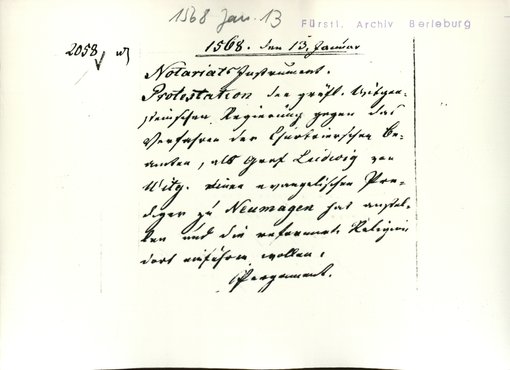 1568 Jan. 13
Fürstl. Archiv Berleburg
2058
1568. den 13. Januar
Notariats Instrument.
Protestation der gräfl. Witgen-
steinschen Regierung gegen das
Verfahren der Churtrierschen Be-
amten, als Graf Ludwig von
Witg. einen evangelischen Pre-
diger zu Neumagen hat anstel-
len und die reformirte Religion
dort einführen wollen.
Pergament.